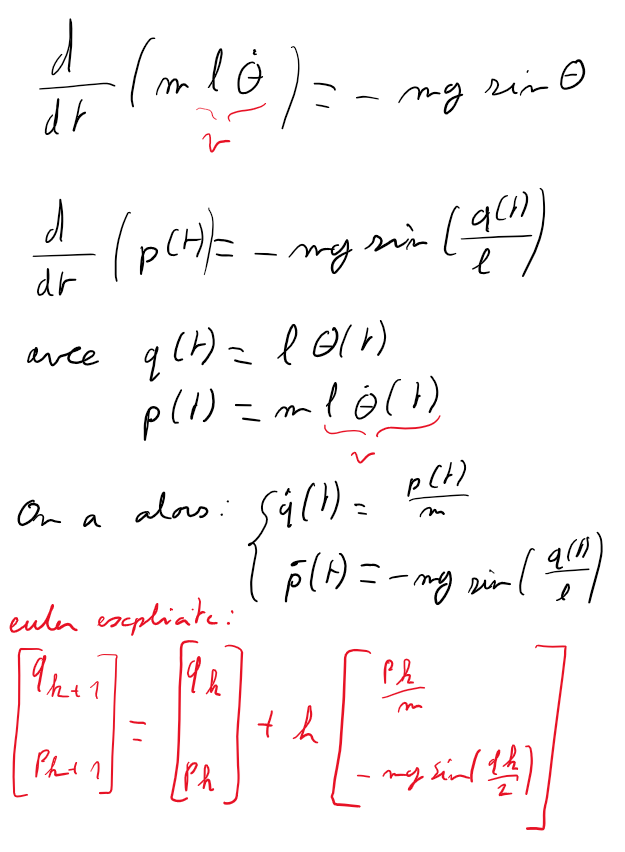 d/dt (m l θ̇) = - mg sin θ
v
d/dt (p(t)) = - mg sin (q(t)/l)
avec q(t) = l θ(t)
p(t) = m l θ̇(t)
v
On a alors : { q̇(t) = p(t)/m
ṗ(t) = - mg sin (q(t)/l)
euler explicite :
[q_{k+1} ; p_{k+1}] = [q_k ; p_k] + h [p_k/m ; - mg sin(q_k/2)]